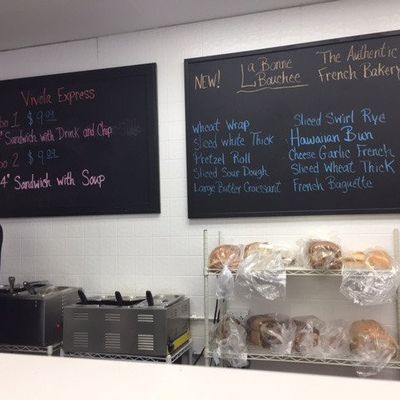 Vivola Express
1 $9.00
Sandwich with Drink and Chip
2 $9.00
4" Sandwich with Soup
NEW! La Bonne Bouchee
The Authentic French Bakery
Wheat Wrap
Sliced white Thick
Pretzel Roll
Sliced Sour Dough
Large Butter Croissant
Sliced Swirl Rye
Hawaiian Bun
Cheese Garlic French
Sliced Wheat Thick
French Baguette